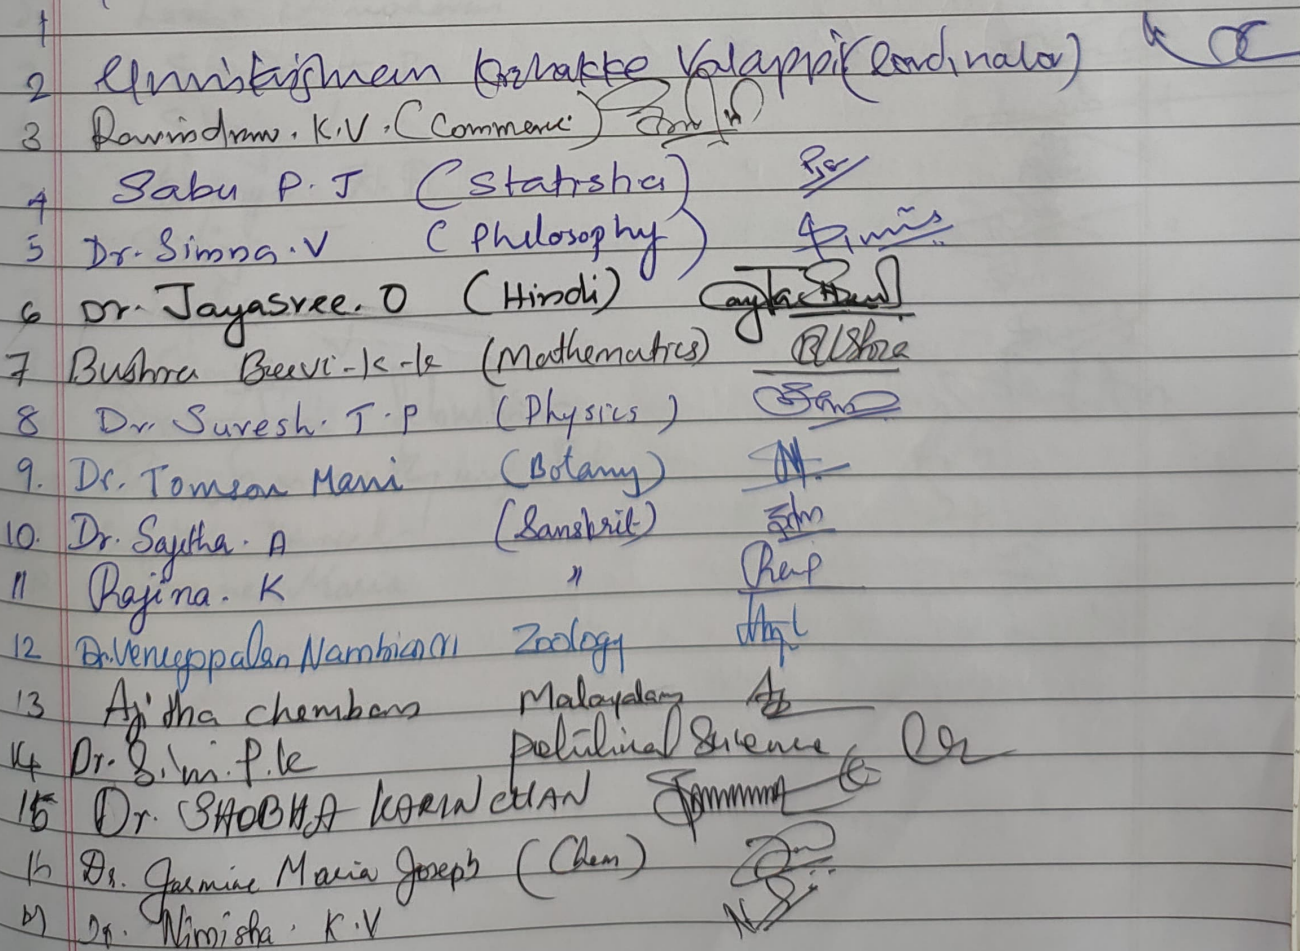 1
2 Unnikrishnan Kizhakke Valappil (Cordinator)
3 Ravindran. K.V. (Commerce)
4 Sabu P. J (Statistics)
5 Dr. Simna. V (Philosophy)
6 Dr. Jayasree. O (Hindi)
7 Bushra Beevi - K - K (Mathematics) Bushra
8 Dr. Suresh. T. P (Physics)
9. Dr. Tomson Mani (Botany)
10. Dr. Sajitha. A (Sanskrit)
11 Rajina. K "
12 Dr. Venugopalan Nambiar Zoology
13 Ajitha Chemban Malayalam
14 Dr. Simi. P. K Political Science
15 Dr. SHOBHA KARINCHAN
16 Dr. Jasmine Maria Joseph (Chem)
17 Dr. Nimisha. K.V